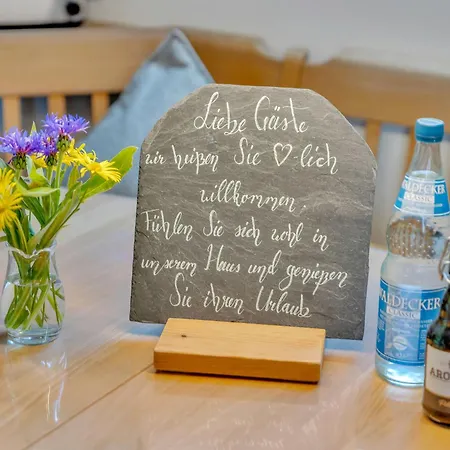 Liebe Gäste
wir heißen Sie ♡lich
willkommen.
Fühlen Sie sich wohl in
unserem Haus und genießen
Sie ihren Urlaub
WALDECKER
CLASSIC
WALDECKER
CLASSIC
ARO